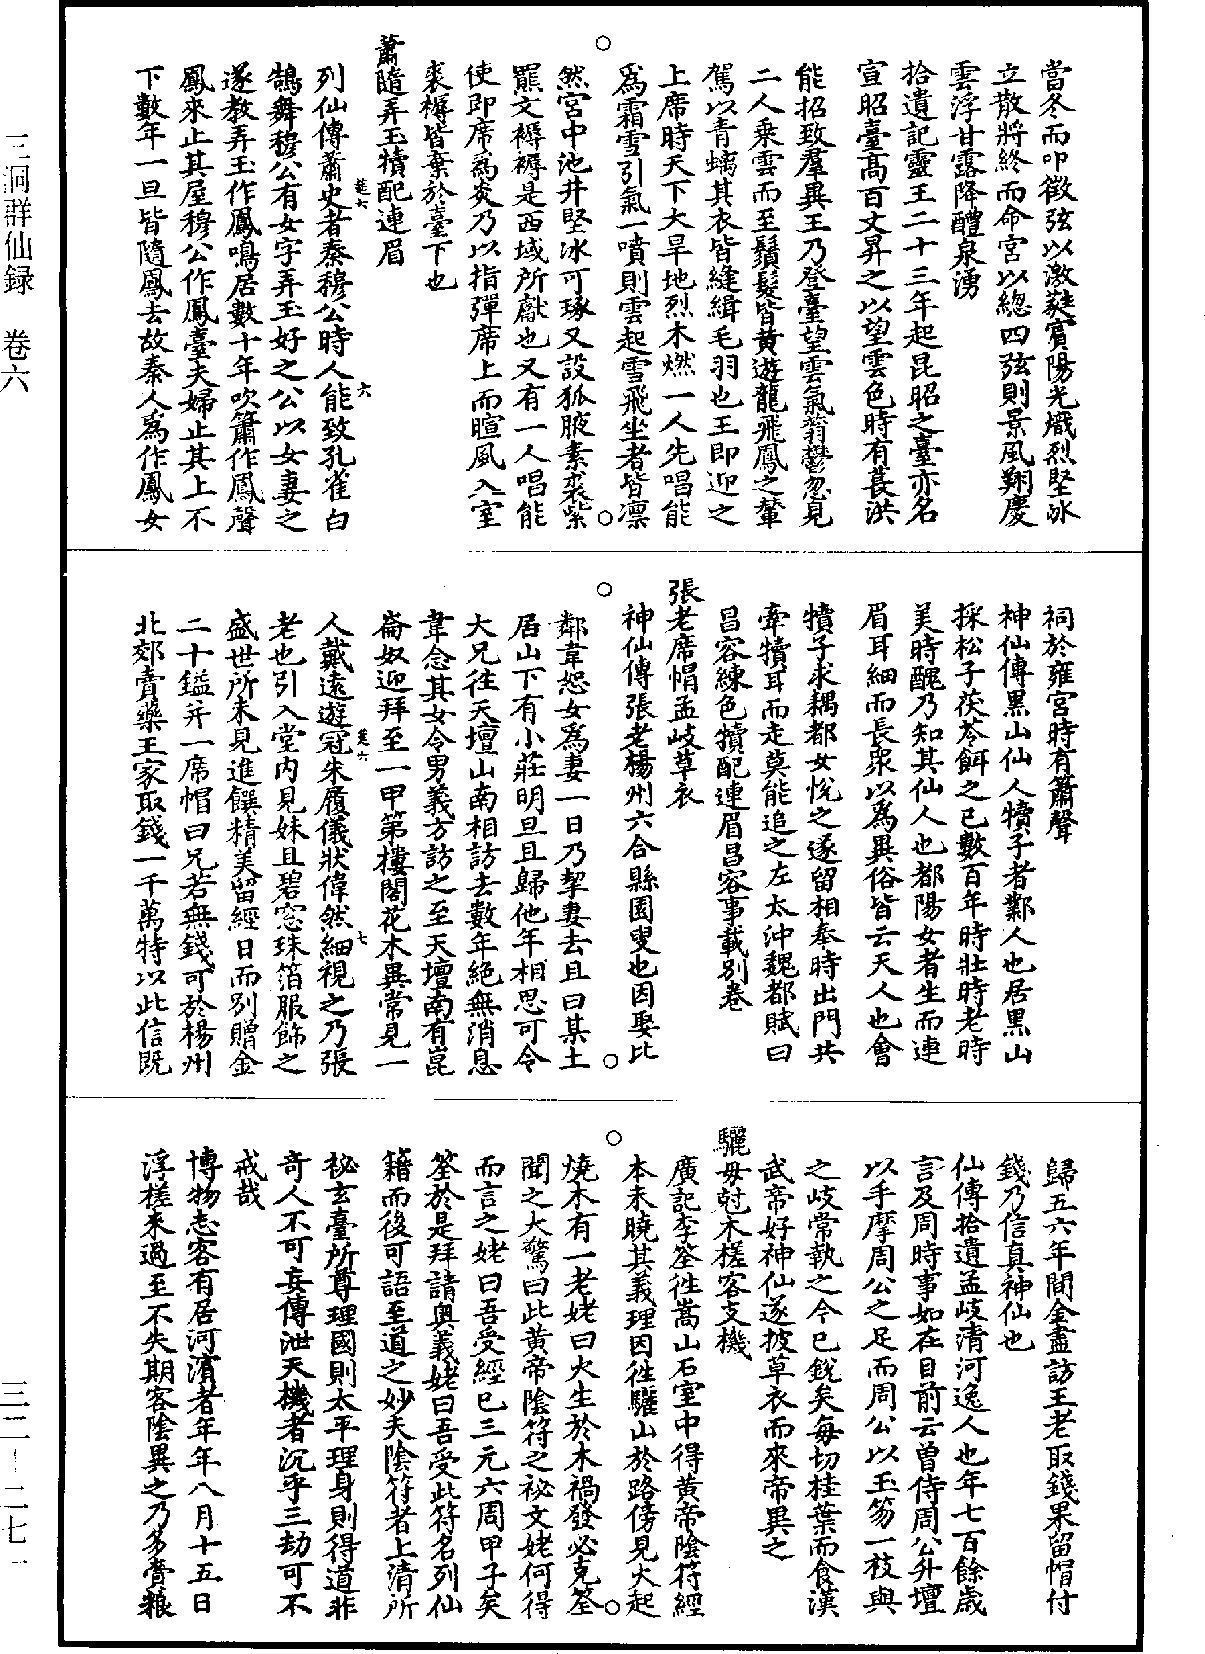 當冬而叩徵弦以激蕤賓陽光熾烈堅冰
立散將終而命宮以總四弦則景風翔慶
雲浮甘露降醴泉湧
拾遺記靈王二十三年起昆昭之臺亦名
宣昭臺高百丈昇之以望雲色時有萇洪
能招致羣異王乃登臺望雲氣蓊鬱忽見
二人乘雲而至鬚髮皆黃遊龍飛鳳之輦
駕以青螭其衣皆縫緝毛羽也王即迎之
上席時天下大旱地烈木燃一人先唱能
爲霜雪引氣一噴則雲起雪飛坐者皆凛
然宮中池井堅冰可琢又設狐腋素裘紫
羆文褥褥是西域所獻也又有一人唱能
使即席爲炎乃以指彈席上而暄風入室
裘褥皆棄於臺下也
蕭隨弄玉犢配連眉
列仙傳蕭史者秦穆公時人能致孔雀白
鵠舞穆公有女字弄玉好之公以女妻之
遂教弄玉作鳳鳴居數十年吹簫作鳳聲
鳳來止其屋穆公作鳳臺夫婦止其上不
下數年一旦皆隨鳳去故秦人爲作鳳女
祠於雍宮時有簫聲
神仙傳黑山仙人犢子者鄴人也居黑山
採松子茯苓餌之已數百年時壯時老時
美時醜乃知其仙人也都陽女者生而連
眉耳細而長衆以爲異俗皆云天人也會
犢子求耦都女悅之遂留相奉時出門共
牽犢耳而走莫能追之左太沖魏都賦曰
昌容練色犢配連眉昌容事載別卷
張老席帽孟岐草衣
神仙傳張老楊州六合縣園叟也因娶比
鄰韋恕女爲妻一日乃挈妻去且曰某土
居山下有小莊明旦且歸他年相思可令
大兄往天壇山南相訪去數年絕無消息
韋念其女令男義方訪之至天壇南有崑
崙奴迎拜至一甲第樓閣花木異常見一
人戴遠遊冠朱履儀狀偉然細視之乃張
老也引入堂內見妹且碧窓珠箔服飾之
盛世所未見進饌精美留經日而別贈金
二十鎰并一席帽曰兄若無錢可於楊州
北郊賣藥王家取錢一千萬特以此信既
歸五六年間金盡訪王老取錢果留帽付
錢乃信真神仙也
仙傳拾遺孟岐清河逸人也年七百餘歲
言及周時事如在目前云曾侍周公升壇
以手摩周公之足而周公以玉笏一枝與
之岐常執之今已銳矣每切桂葉而食漢
武帝好神仙遂披草衣而來帝異之
驪母尅木槎客支機
廣記李筌往嵩山石室中得黃帝陰符經
本未曉其義理因往驪山於路傍見火起
燒木有一老姥曰火生於木禍發必克筌
聞之大驚曰此黃帝陰符之祕文姥何得
而言之姥曰吾受經已三元六周甲子矣
筌於是拜請奧義姥曰吾受此符名列仙
籍而後可語至道之妙夫陰符者上清所
祕玄臺所尊理國則太平理身則得道非
奇人不可妄傳泄天機者沉乎三劫可不
戒哉
博物志客有居河濱者年年八月十五日
浮槎來過至不失期客陰異之乃多賷粮
三洞群仙録　卷六
三二—二七一